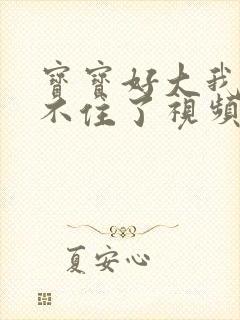 寶寶好大我
不住了視頻
夏安心